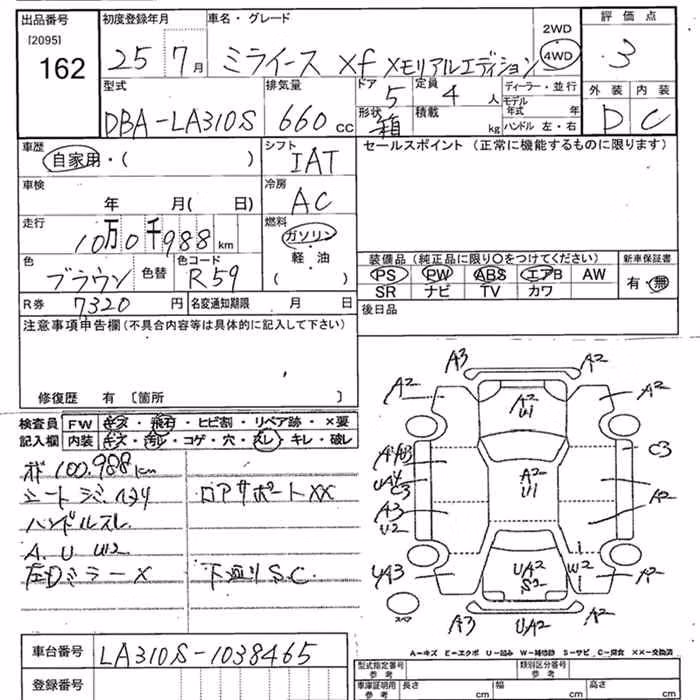 出品番号 初度登録年月 車名・グレード 2WD 評価点
[2095] 162 25 7月 ミライース Xf メモリアルエディション 4WD 3
型式 排気量 ドア 定員 ディーラー・並行 外装 内装
DBA-LA310S 660cc 5 4人 モデル年式 年 D C
形状 箱 積載 kg ハンドル 左・右
車歴 シフト セールスポイント(正常に機能するものに限ります)
自家用・( ) IAT
車検 冷房
年 月( 日) AC
走行 燃料
10万0千988km ガソリン
軽・油
( )
装備品(純正品に限り〇をつけてください) 新車保証書
色 色替 色コード PS PW ABS エアB AW 有・無
ブラウン R59 SR ナビ TV カワ
R券 7320円 名変通知期限 月 日 後日品
注意事項申告欄(不具合内容等は具体的に記入して下さい)
修復歴 有 〔箇所 〕
検査員 FW キズ・飛石・ヒビ割・リペア跡・×要
記入欄 内装 キズ・汚レ・コゲ・穴・スレ・キレ・破レ
100,988km
ロアサポートXX
ハンドルスレ
A. U W2
左DミラーX 下廻りS.C.
A3 A2
A2 A2 W1 A2
C3
C3 A2 U1 A2
A3
U2
UA2 S2 W2
UA3 A2
スペア A3 UA2 A2
A-キズ E-エクボ U-凹み W-補修跡 S-サビ C-腐食 XX-交換済
車台番号 LA310S-1038465
登録番号
型式指定番号 参考 類別区分番号 参考
車庫証明用 参考 長さ cm 幅 cm 高さ cm